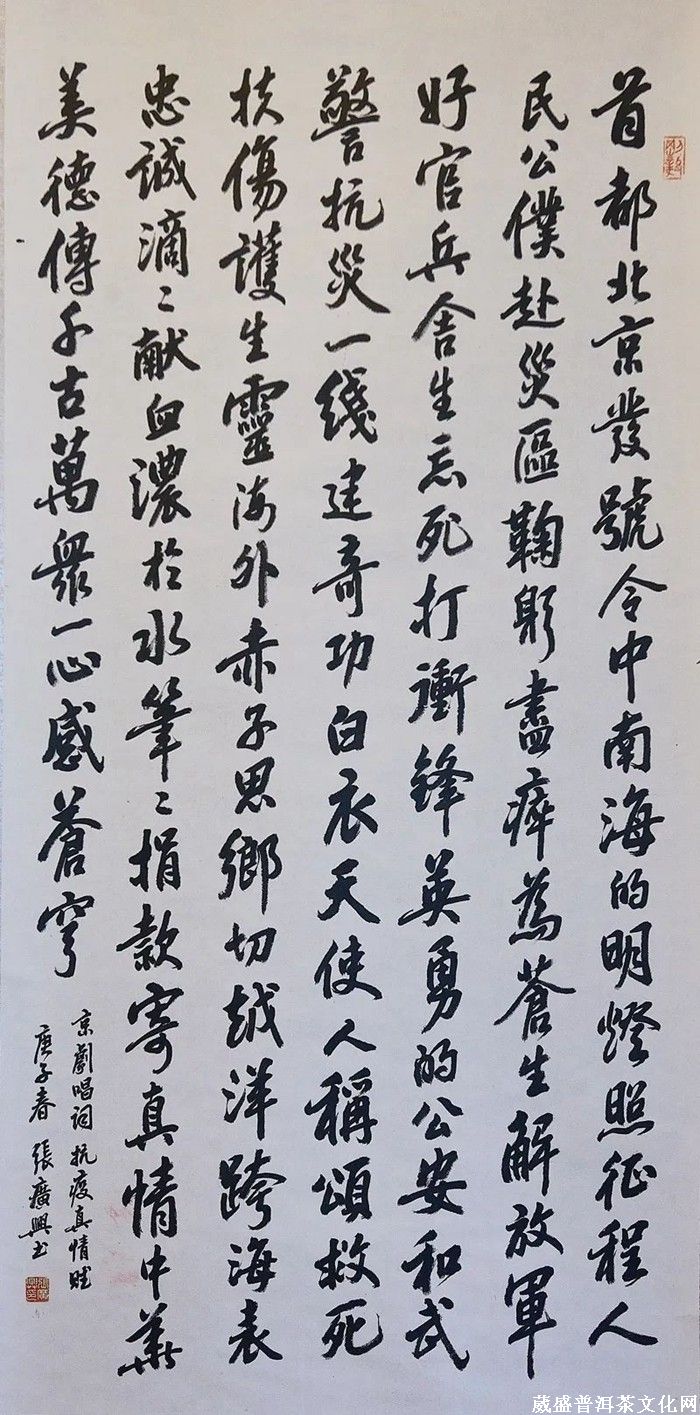 首都北京發號令中南海的明燈照征程人
民公僕赴災區鞠躬盡瘁為蒼生解放軍
好官兵舍生忘死打衝鋒英勇的公安和武
警抗災一綫建奇功白衣天使人稱頌救死
扶傷護生靈海外赤子思鄉切越洋跨海表
忠誠滴〻献血濃於水筆〻捐款寄真情中華
美德傳千古萬眾一心感蒼穹
京劇唱词抗疫真情赋
庚子春 張廣興书
葳盛普洱茶文化网